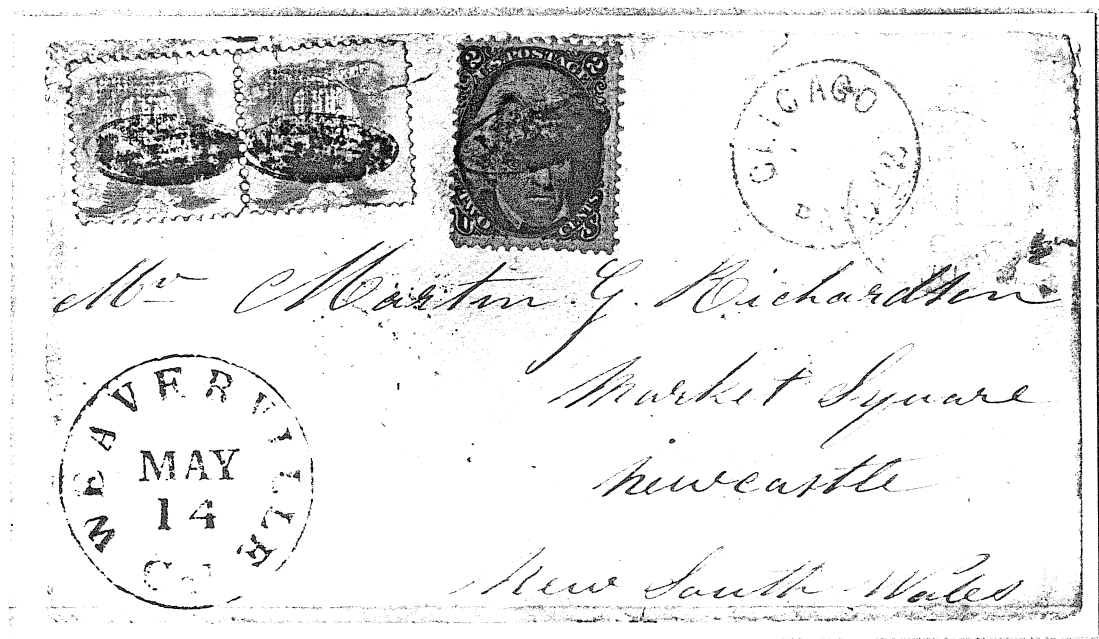 2 U.S. POSTAGE 2
TWO CENTS
CHICAGO
Mr Martin G. Richardson
Market Square
Newcastle
New South Wales
WEAVERVILLE
MAY
14